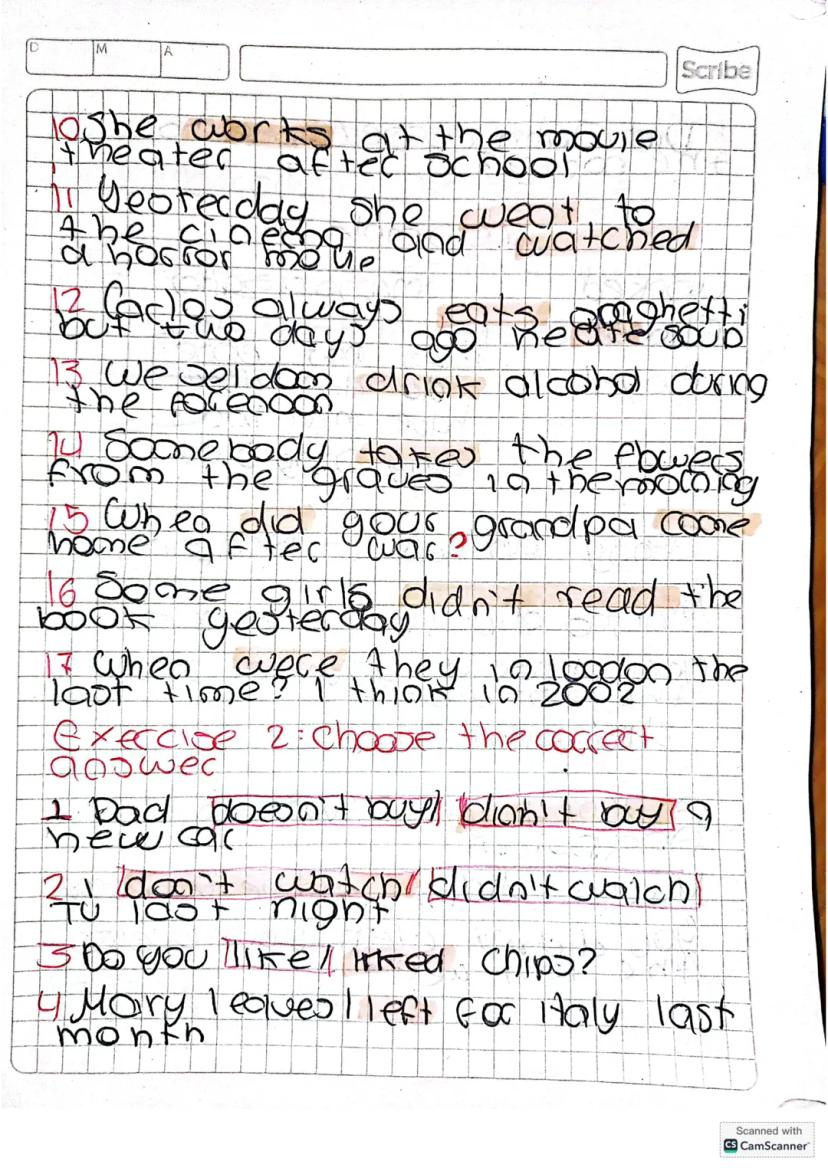 D
M
A
Scribe
10 She works at the movie
theater after school
11 Yesterday she went to
the cinema and watched
a horror movie
12 Carlos always eats spaghetti
but two days ago he ate soup
13 We seldom drink alcohol during
the forenoon
14 Somebody takes the flowers
from the graves in the morning
15 When did your grandpa come
home after war?
16 Some girls didn't read the
book yesterday
17 When were they in london the
last time? I think in 2002
Exercise 2: choose the correct
answer
1 Dad doesn't buy/ didn't buy a
new car
2 I don't watch/ didn't watch
TV last night
3 Do you like/ liked chips?
4 Mary leaves/left for italy last
month
Scanned with
CS CamScanner